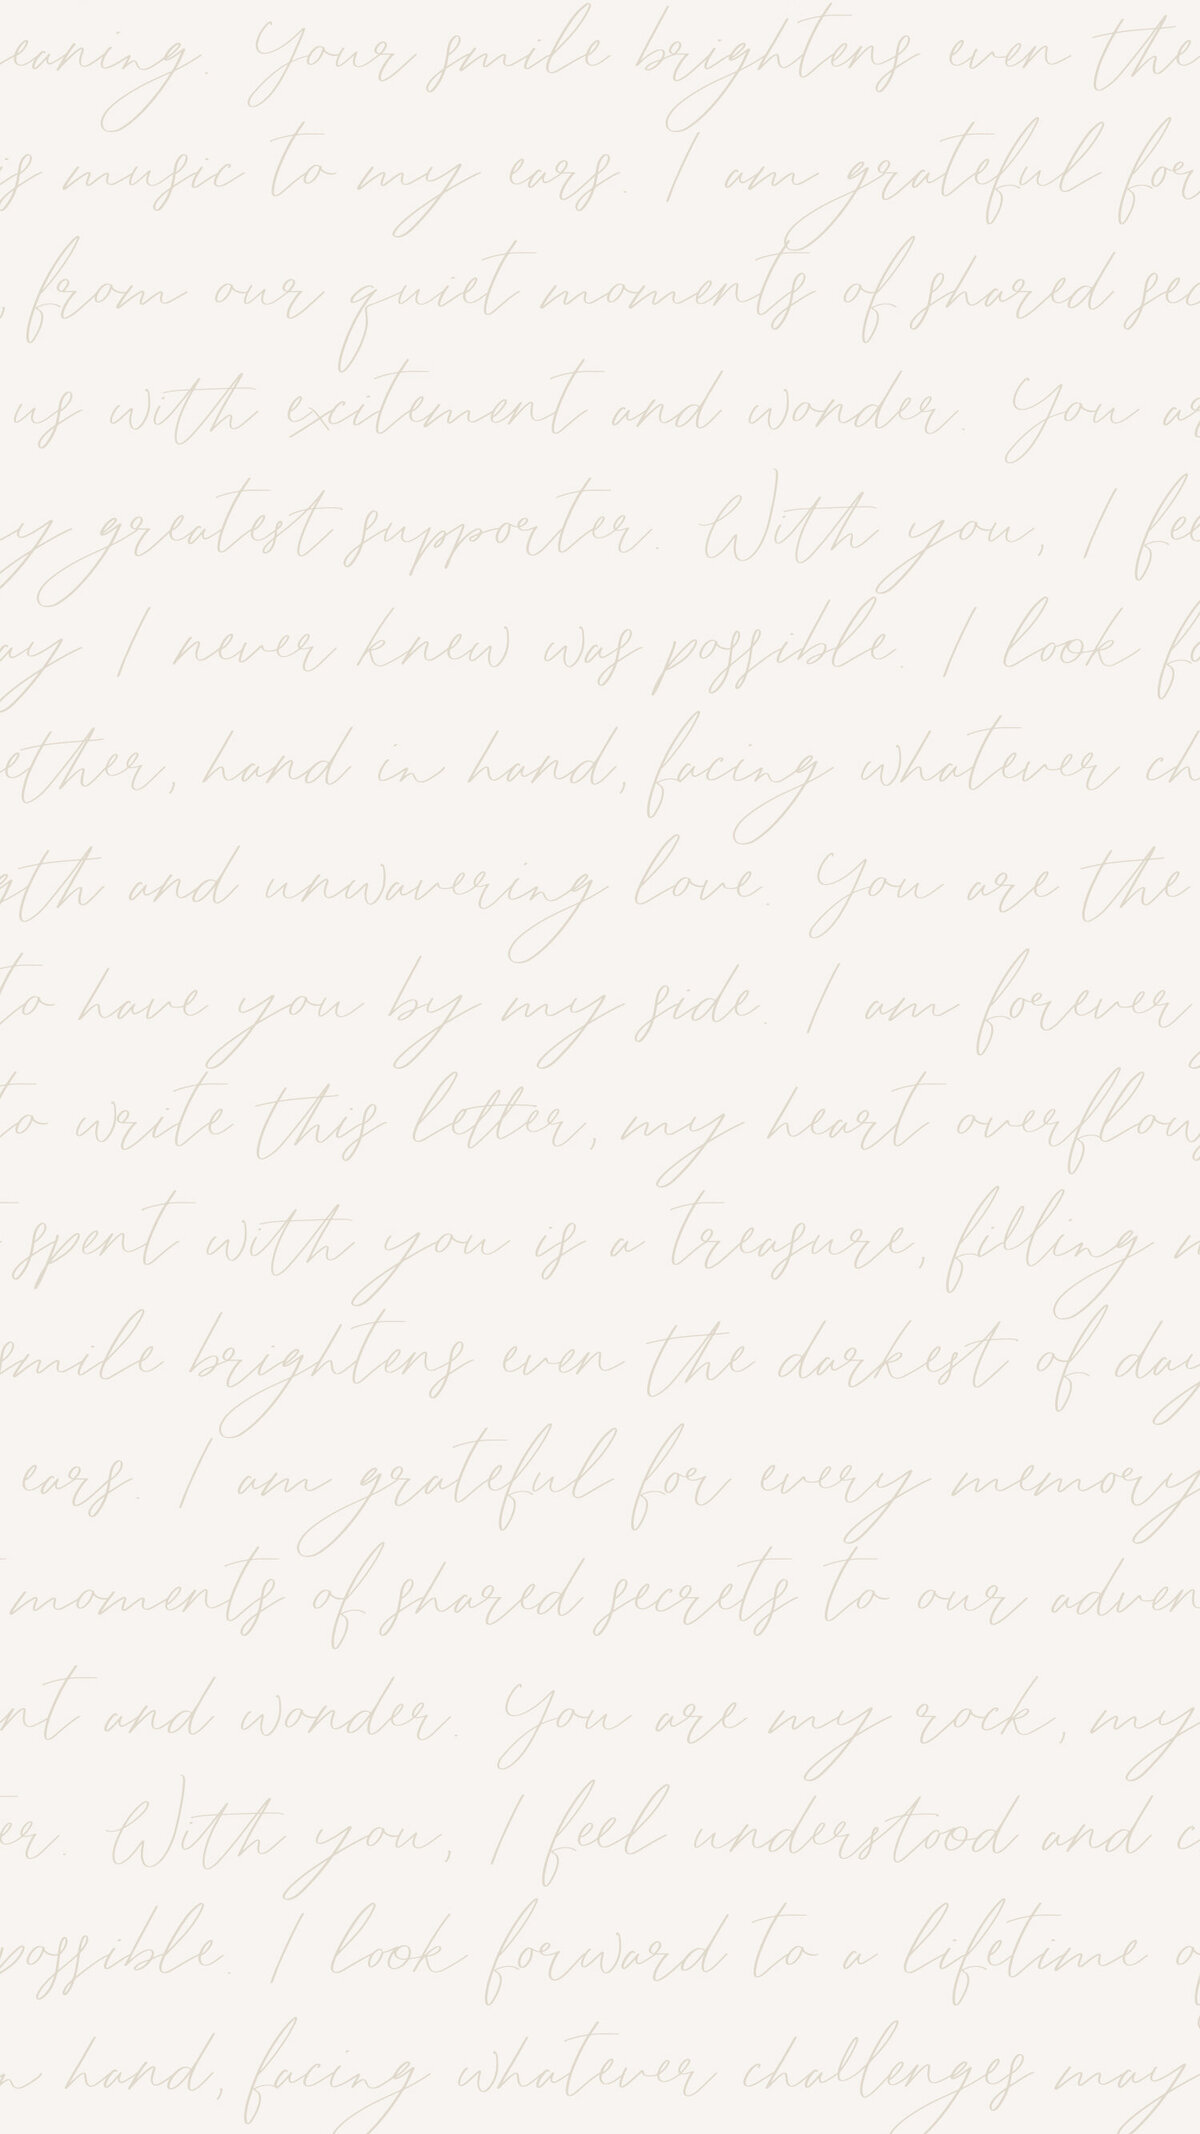 eaning. Your smile brightens even the
is music to my ears. I am grateful for
, from our quiet moments of shared sec
us with excitement and wonder. You ar
y greatest supporter. With you, I fee
ay I never knew was possible. I look fo
ether, hand in hand, facing whatever ch
gth and unwavering love. You are the
to have you by my side. I am forever
to write this letter, my heart overflows
spent with you is a treasure, filling m
smile brightens even the darkest of day
ears. I am grateful for every memory
moments of shared secrets to our adven
nt and wonder. You are my rock, my
er. With you, I feel understood and c
possible. I look forward to a lifetime o
n hand, facing whatever challenges may